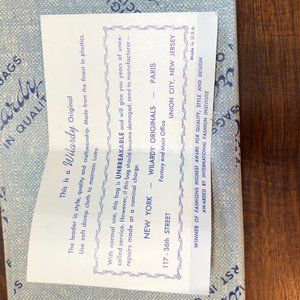 This is a Wilardy Original
The leader in style, quality and craftsmanship. Made from the finest in plastics.
Use soft damp cloth to maintain lustre.
With normal use, this bag is UNBREAKABLE and will give you years of unex-
celled service. However, if this bag should become damaged, send to manufacturer —
repairs made at a nominal charge.
NEW YORK — WILARDY ORIGINALS — PARIS
Factory and Main Office
117 36th STREET UNION CITY, NEW JERSEY
Made in U.S.A.
WINNER OF FASHIONS HIGHEST AWARD FOR QUALITY, STYLE AND DESIGN
AWARDED BY INTERNATIONAL FASHION INSTITUTE
BAGS
ardy
IN QUAL
BAGS